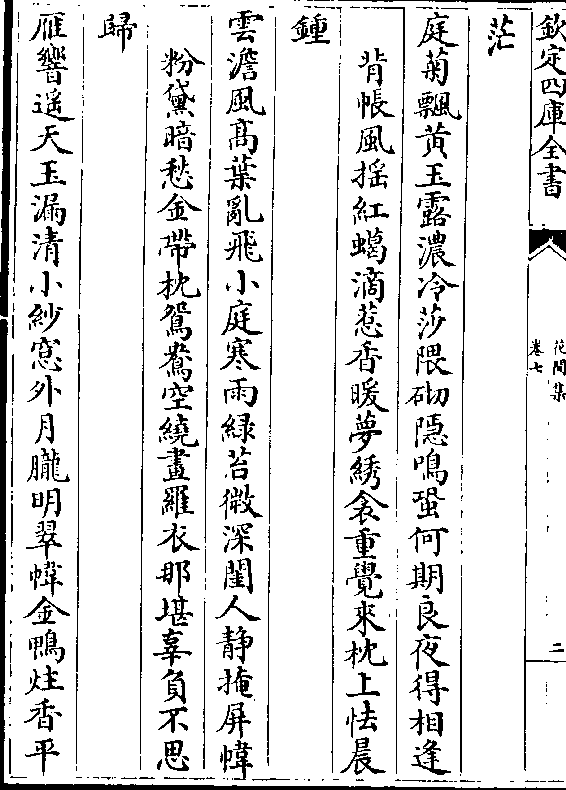 欽定四庫全書
花間集
卷七
二
茫
庭菊飄黄玉露濃冷莎隈砌隱鳴蛩何期良夜得相逢
背帳風揺紅蠟滴惹香暖夢綉衾重覺來枕上怯晨
鍾
雲澹風髙葉亂飛小庭寒雨緑苔微深閨人静掩屏幃
粉黛暗愁金帶枕鴛鴦空繞畫羅衣那堪辜負不思
歸
雁響遥天玉漏清小紗窓外月朧明翠幃金鴨炷香平